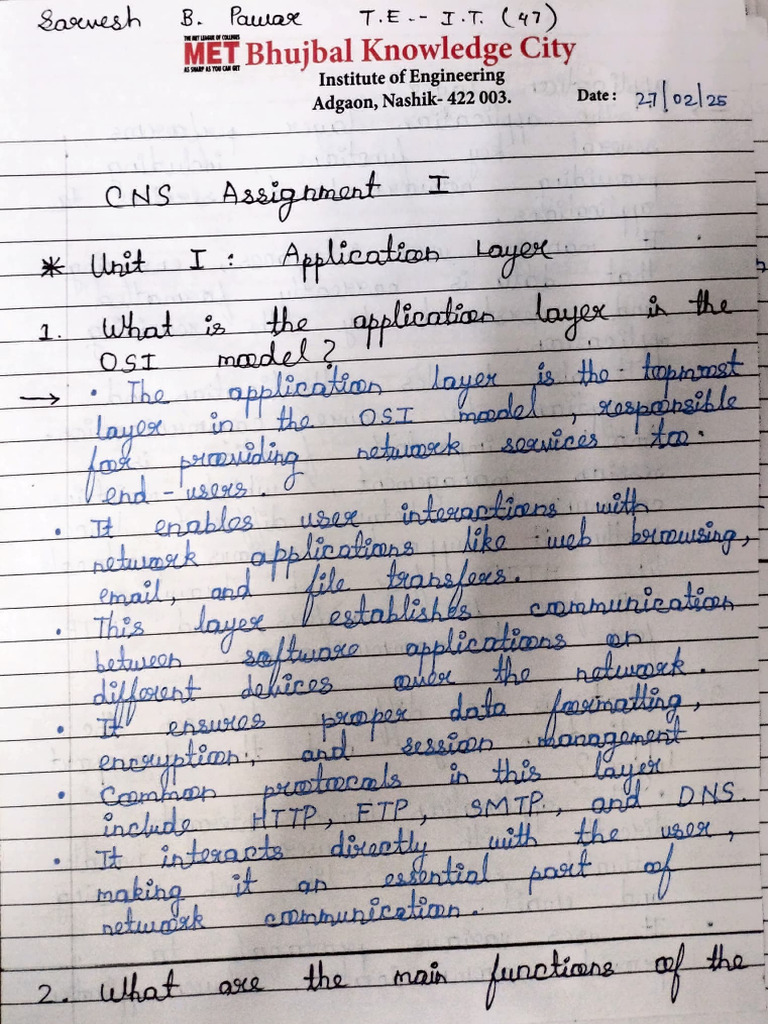 Sarvesh B. Pawar T.E.-- I.T. (47)
THE MET LEAGUE OF COLLEGES
MET Bhujbal Knowledge City
AS SHARP AS YOU CAN GET
Institute of Engineering
Adgaon, Nashik- 422 003. Date : 27/02/25
CNS Assignment I
* Unit I : Application Layer
1. What is the application layer in the
OSI model?
→ • The application layer is the topmost
layer in the OSI model, responsible
for providing network services to
end-users.
• It enables user interactions with
network applications like web browsing,
email, and file transfers.
• This layer establishes communication
between software applications on
different devices over the network.
• It ensures proper data formatting,
encryption, and session management.
• Common protocols in this layer
include HTTP, FTP, SMTP, and DNS.
• It interacts directly with the user,
making it an essential part of
network communication.
2. What are the main functions of the